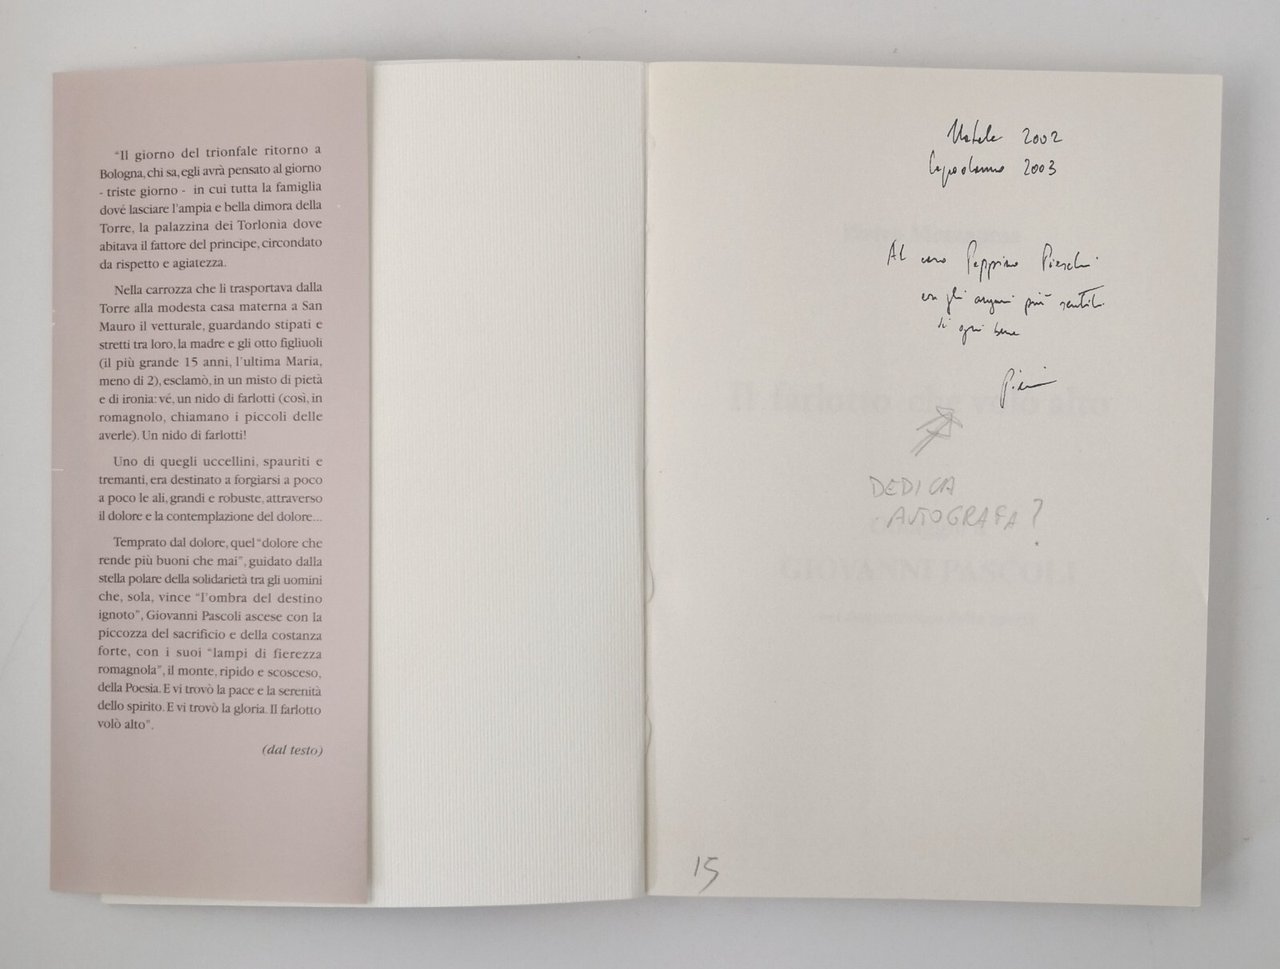 “Il giorno del trionfale ritorno a
Bologna, chi sa, egli avrà pensato al giorno
- triste giorno - in cui tutta la famiglia
dové lasciare l'ampia e bella dimora della
Torre, la palazzina dei Torlonia dove
abitava il fattore del principe, circondato
da rispetto e agiatezza.
Nella carrozza che li trasportava dalla
Torre alla modesta casa materna a San
Mauro il vetturale, guardando stipati e
stretti tra loro, la madre e gli otto figliuoli
(il più grande 15 anni, l'ultima Maria,
meno di 2), esclamò, in un misto di pietà
e di ironia: vé, un nido di farlotti (così, in
romagnolo, chiamano i piccoli delle
averle). Un nido di farlotti!
Uno di quegli uccellini, spauriti e
tremanti, era destinato a forgiarsi a poco
a poco le ali, grandi e robuste, attraverso
il dolore e la contemplazione del dolore...
Temprato dal dolore, quel “dolore che
rende più buoni che mai”, guidato dalla
stella polare della solidarietà tra gli uomini
che, sola, vince “l'ombra del destino
ignoto”, Giovanni Pascoli ascese con la
piccozza del sacrificio e della costanza
forte, con i suoi “lampi di fierezza
romagnola”, il monte, ripido e scosceso,
della Poesia. E vi trovò la pace e la serenità
dello spirito. E vi trovò la gloria. Il farlotto
volò alto”.
(dal testo)
Natale 2002
Capodanno 2003
Al caro Peppino
con gli auguri più sentiti
di ogni bene
DEDICA
AUTOGRAFA?
Il farlotto che volò alto
GIOVANNI PASCOLI
15